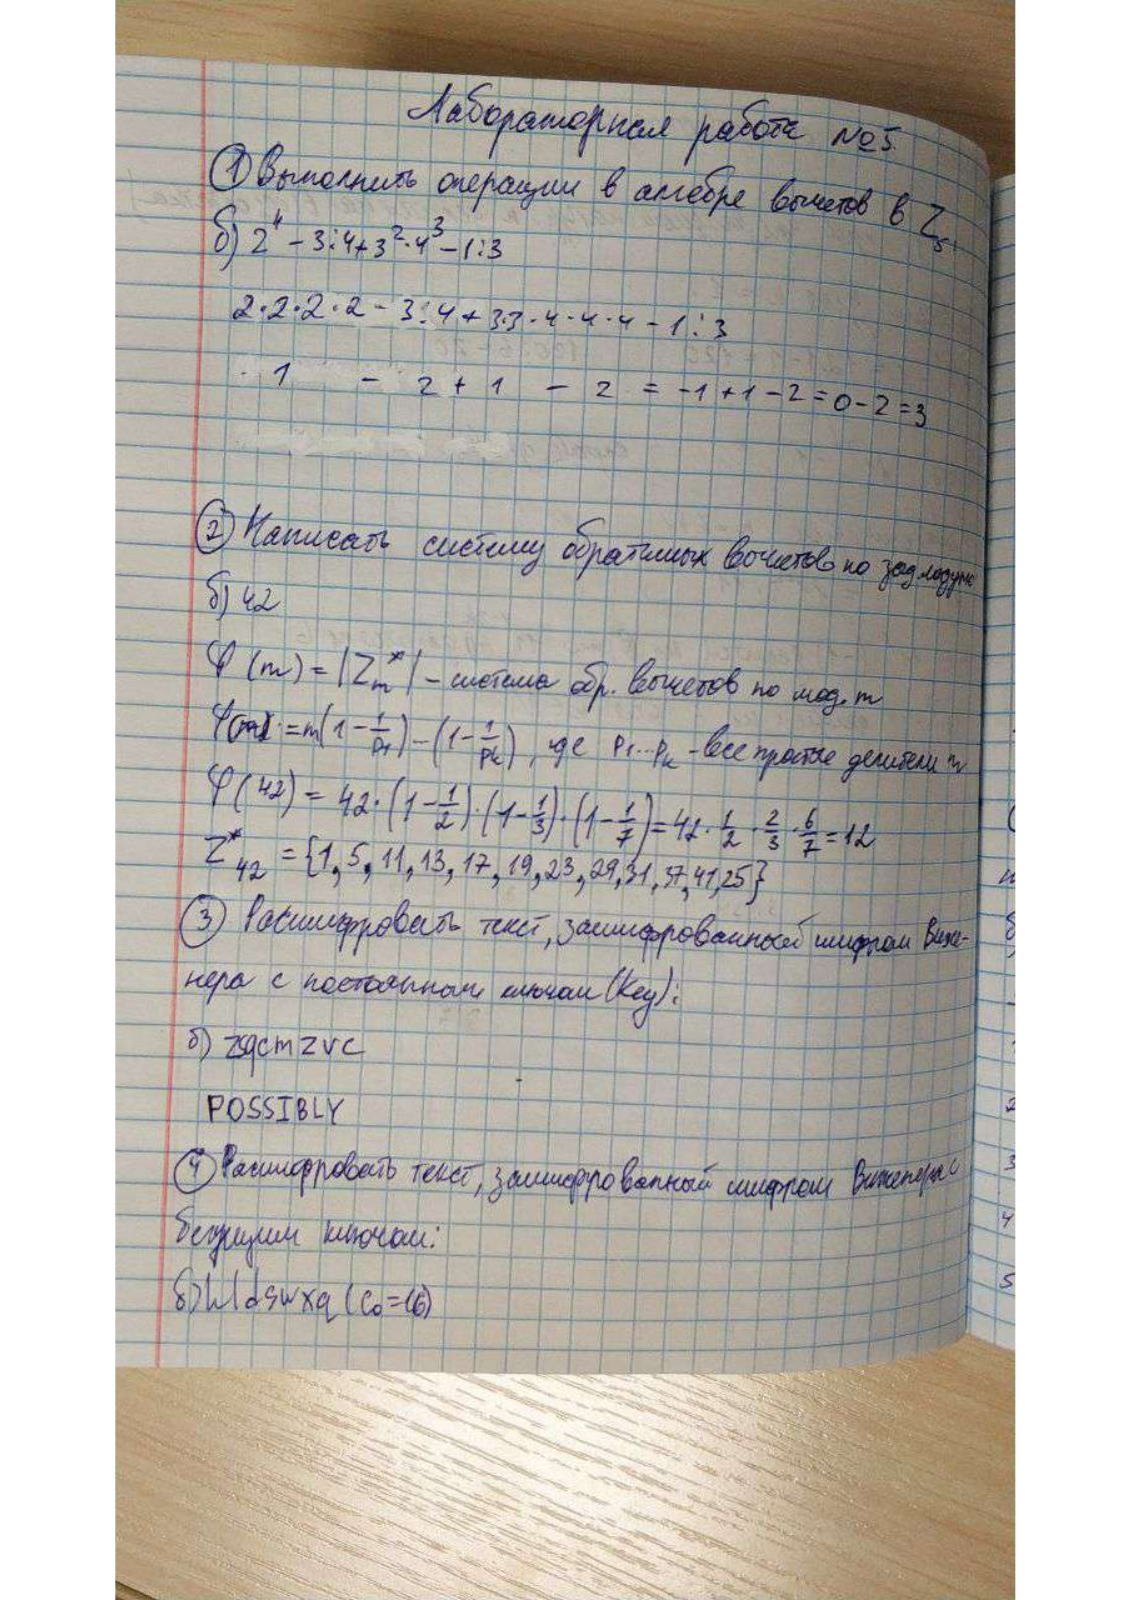 Лабораторная работа №5.
① Выполнить операции в алгебре вычетов в Z₅
б) 2⁴ - 3:4 + 3²·4³ - 1:3
2·2·2·2 - 3:4 + 3·3·4·4·4 - 1:3
1 - 2 + 1 - 2 = -1+1-2=0-2=3
② Написать систему обратимых вычетов по зад. модулю
б) 42
φ(m) = |Z*m| - система обр. вычетов по мод. m
φ(m) = m(1 - 1/p₁) - (1 - 1/pₖ), где p₁...pₖ - все простые делители m
φ(42) = 42·(1-1/2)·(1-1/3)·(1-1/7)=42·1/2·2/3·6/7=12
Z*₄₂ = {1, 5, 11, 13, 17, 19, 23, 29, 31, 37, 41, 25}
③ Расшифровать текст, зашифрованный шифром Виже-
нера с постоянным ключом (Key):
б) zsqcmzvc
POSSIBLY
④ Расшифровать текст, зашифрованный шифром Виженера с
бегущим ключом:
б) (C₀=16)